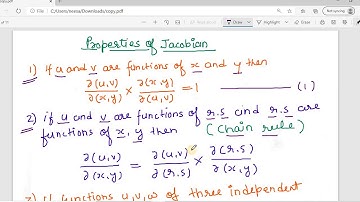 File C:/Users/neena/Downloads/copy.pdf
Properties of Jacobian
1) if u and v are functions of x and y then
∂(u,v)/∂(x,y) × ∂(x,y)/∂(u,v) = 1 ——— (1)
2) if u and v are functions of r.s and r.s are
functions of x, y then (chain rule)
∂(u,v)/∂(x,y) = ∂(u,v)/∂(r.s) × ∂(r.s)/∂(x,y)
if functions u,v,w of three independent